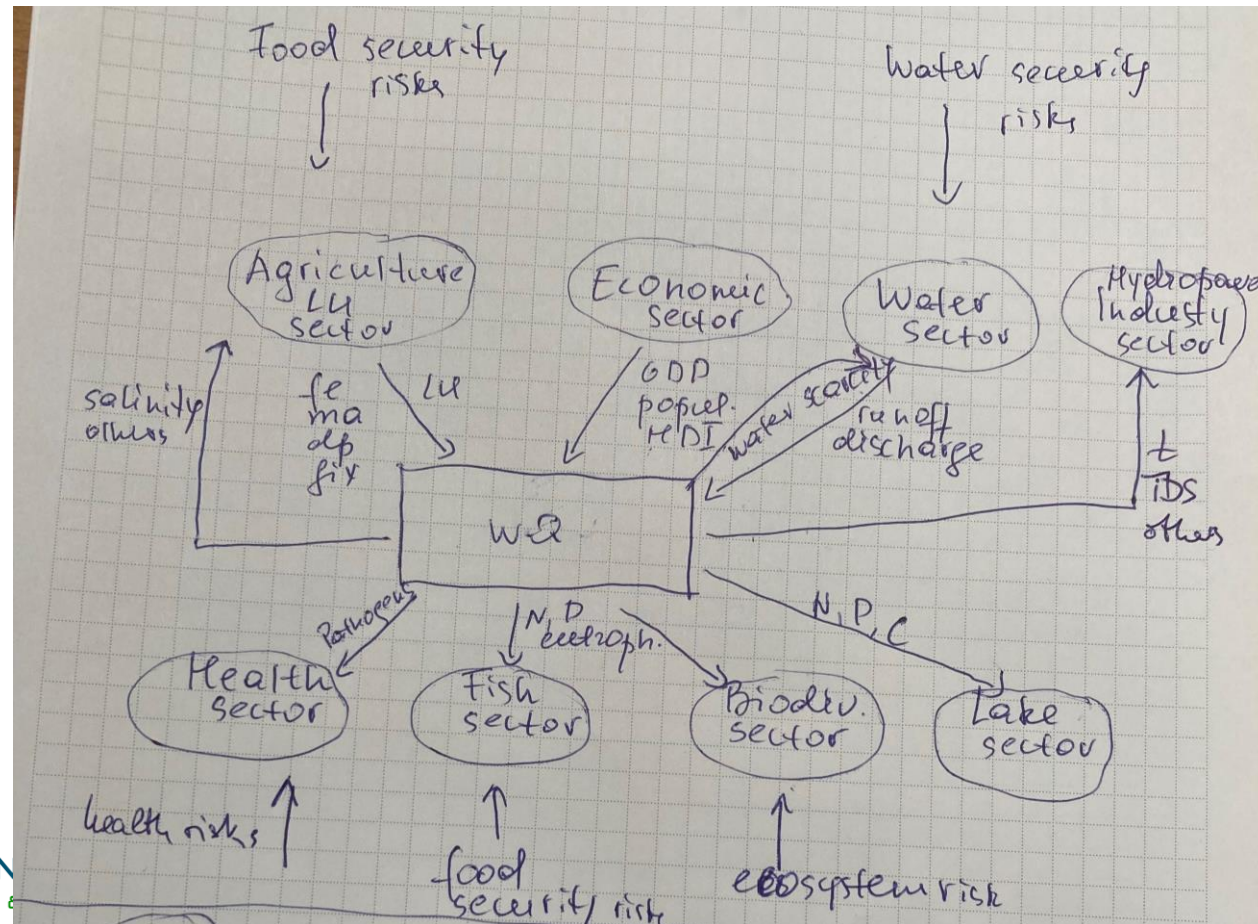 Food security
risks
Water security
risks
Agriculture
LU
sector
Economic
sector
Water
sector
Hydropower
Industry
sector
salinity
others
fe
ma
dp
fix
LU
GDP
popul.
HDI
water scarcity
runoff
discharge
t
TDS
others
WQ
Pathogens
N, P
eutroph.
N, P, C
Health
sector
Fish
sector
Biodiv.
sector
Lake
sector
health risks
food
security risks
ecosystem risk